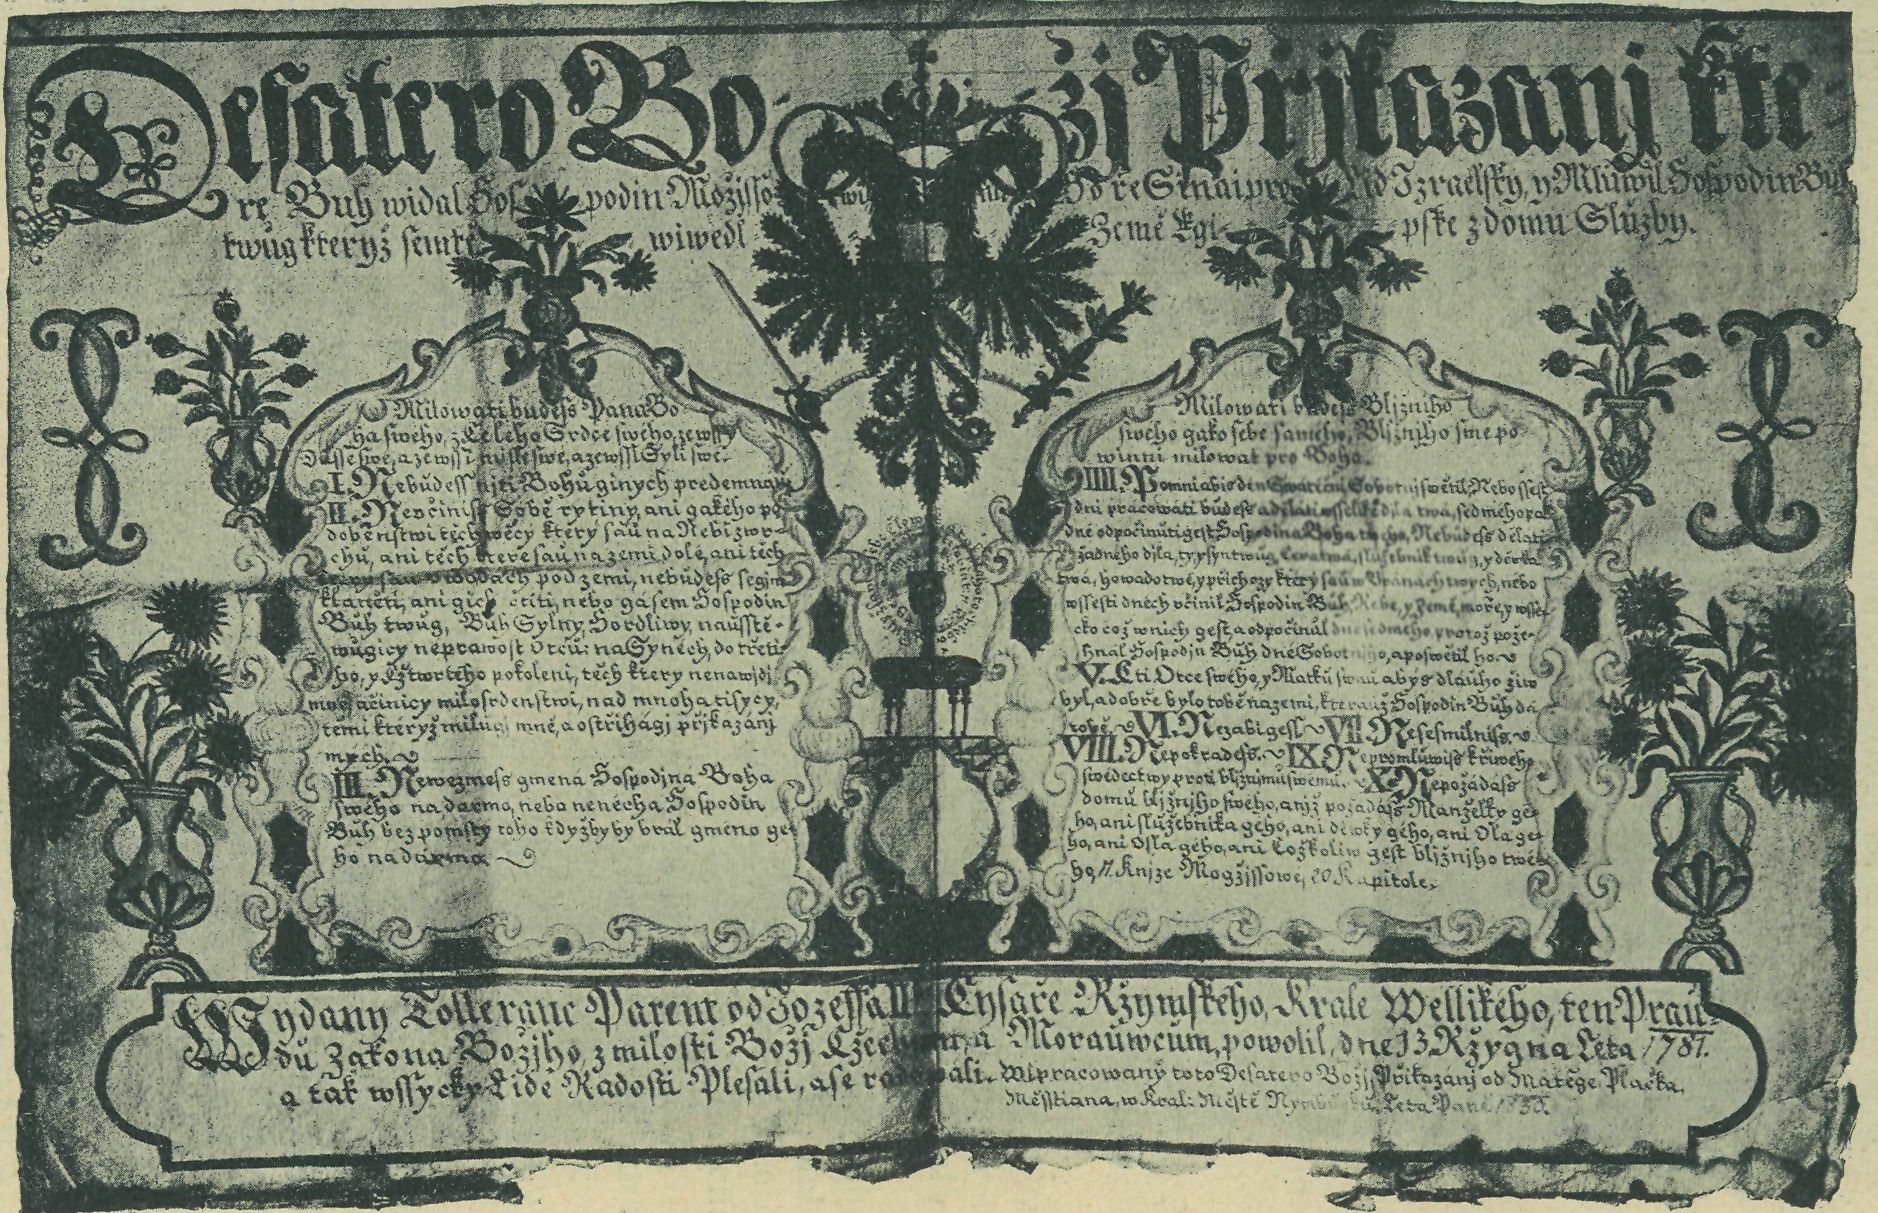 Desatero Bo- ži Přjkazanj kte-
re Buh widal Hospodin Možissо Hoře Sinai pro Lid Izraelsky, y Mluwil Hospodin Buh
twug kteryž semtě wiwedl Země Egipske z domu Slúzby.
Milowati budess Pana Bo-
ha sweho, z Celeho Srdce sweho, ze wssy
Dusse swe, a ze wssi mysle swe, a ze wssi Syli swe.
I. Nebudess miti Bohu ginych predemnau
II. Nevčiniss Sobě rytiny, ani gakeho po
dobenstwi těch wěcy ktery sau na Nebi zwr-
chu, ani těch ktere sau na zemi dole, ani těch
ktery sau w wodach pod zemi, nebudess segim
klaněti, ani gich ctiti, nebo ga sem Hospodin
Buh twug, Buh Sylny, Horliwy, nausstě-
wugicy neprawost Otcu: na Synech, do třeti-
ho, y Cžtwrteho pokoleni, těch ktery nenawjdj
mne, a činicy milosrdenstwi, nad mnoha tisycy,
těmi kteryž milugj mně, a ostřihagj přjkazánj
mych.
III. Newezmess gmena Hospodjna Boha
sweho nadarmo, neba nenecha Hospodin
Buh bez pomsty toho kdyžby bral gmeno ge-
ho nadarmo
Milowati budess Bljžniho
sweho gako sebe sameho, Bljžniho sme po-
winni milowat pro Boha.
IIII. Pomni abis den Swateční Sobotnj swětil, Nebo ssest
dni pracowati budess a dělati wsselike dila twa, sedmeho pak
dne odpočinuti gest Hospodina Boha tweho, Nebudess dělati
žadneho dila, ty, y syn twug Cera twa, služebnik twug, y děwka
twa, howado twe, y přichozy ktery sau w Branach twych, nebo
w ssesti dnech včinil Hospodin Buh, Nebe, y Země, moře, y wsse-
cko což w nich gest, a odpočinul dne sedmeho, protož pože-
hnal Hospodjn Buh dne Sobotnjho, a poswětil ho
V. Cti Otce sweho, y Matku swau abys dlauho žiw
byl, a dobře bylo tobě na zemi, kterauž Hospodin Buh dá
tobě. VI. Nezabigess VII Nesesmilniss.
VIII. Nepokradess. IX Nepromluwiss křiweho
swědectwy proti bližnimu swěmu. X. Nepožádáss
domu bljžnjho sweho, anjž požadáss Manželky ge-
ho, ani služebnika geho, ani děwky geho, ani Ola ge-
ho, ani Osla geho, ani Cožkoliw gest bljžnjho twe-
ho, II. Knjze Mogžjssowe, 20 Kapitole.
Wydany Tolleranc Patent od Jozeffa II. Cysaře Ržymskeho, Krale Wellikeho, ten Prau-
du Zakona Božjho, z milosti Božj Cžechum, a Morauwcum, powolil, dne 13 Ržygna Leta 1781.
a tak wssycky Lide Radosti Plesali, a se radowali. Wipracowaný toto Desatero Božj Přikazánj od Matěge Plačka,
Měsstiana, w Kral: Městě Nymburku, Leta Paně 1830.